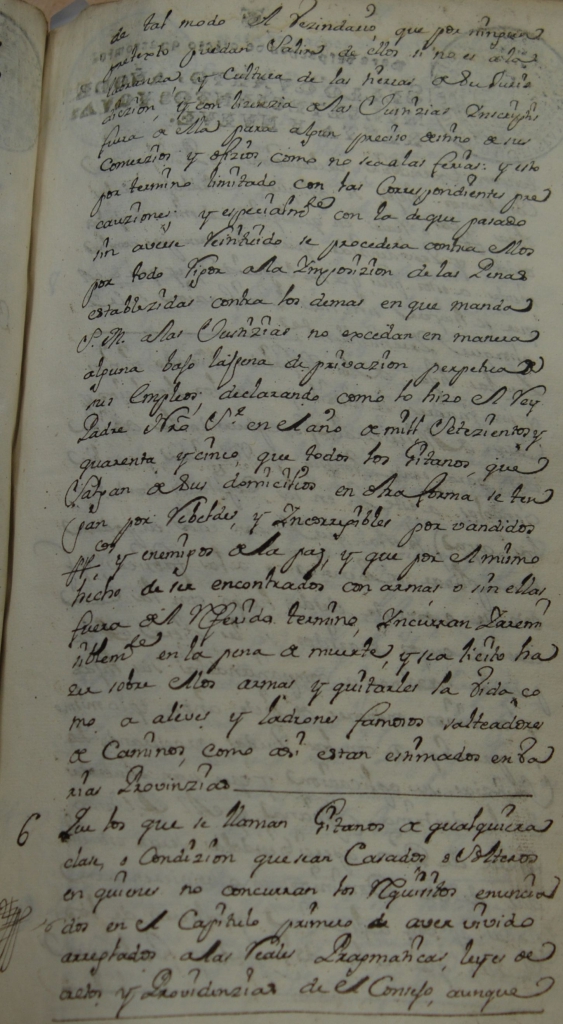 de tal modo el Vezindario, que por ningun
pretexto puedan Salir de ellos si no es a la
labranza y Cultura de las tierras de su Juris
dizion, y con lizenzia de las Justizias
fuera de ella para algun preciso destino de sus
Comerzios y ofizios, como no sea a las ferias: y esto
por termino limitado con las Correspondientes pre
cauziones: y especialmte con la de que pasado
sin averse restituido se procedera contra ellos
por todo rigor a la Imposizion de las Penas
establezidas contra los demas en que manda
S. M. a las Justizias no excedan en manera
alguna bajo la pena de privazion perpetua de
sus Empleos; declarando como lo hizo el Rey
Padre Nro Sr. en el año de mill Setezientos y
quarenta y cinco, que todos los Gitanos, que
Salgan de sus domicilios en otra forma se ten
gan por Rebeldes, y Incorregibles por vandidos
ppcos y enemigos de la paz, y que por el mismo
hecho de ser encontrados con armas, o sin ellas
fuera del Referido termino, Yncurran Yrremi
siblemte en la pena de muerte, y sea lizito ha
zer sobre ellos armas y quitarles la vida co
mo a aleves y ladrones famosos salteadores
de Caminos, como asi estan estimados en ba
rias Provinzias
6 Que los que se llaman Gitanos de qualquiera
clase, o Condizion que sean Casados o Solteros
en quienes no concurran los Requisitos enuncia
dos en el Capitulo primero de aver vivido
arreglados a las Reales Pragmaticas, leyes de
actos y Providenzias de el Consejo, aunque